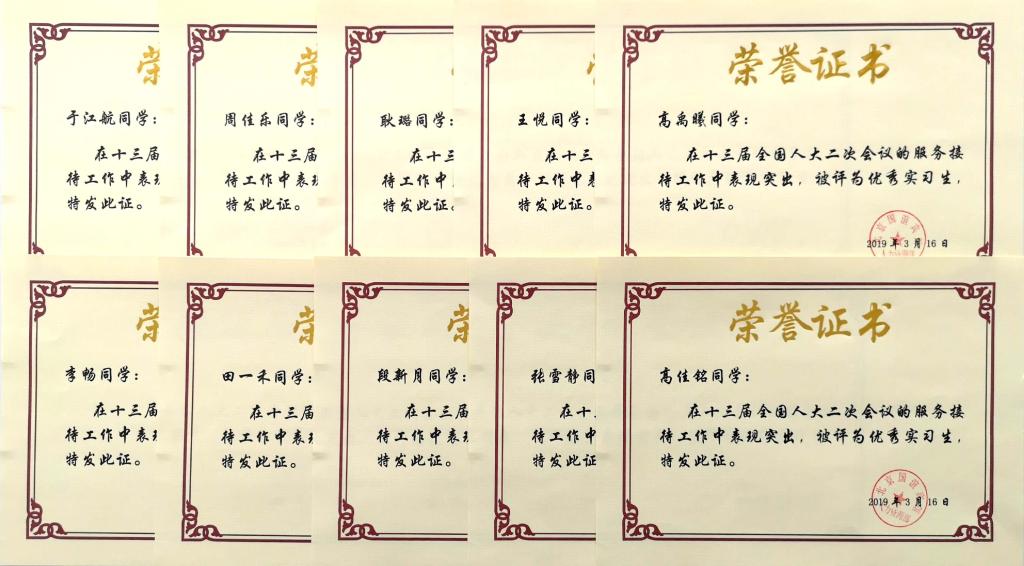 荣
于江航同学：
在十三届
待工作中表现
特发此证。
荣
周佳乐同学：
在十三届
待工作中表现
特发此证。
耿璐同学：
在十三
待工作中
特发此证。
王悦同学：
在十三
待工作中
特发此证。
荣誉证书
高禹曦同学：
在十三届全国人大二次会议的服务接
待工作中表现突出，被评为优秀实习生，
特发此证。
2019年3月16日
荣
李畅同学：
在十三届
待工作中表现
特发此证。
荣
田一禾同学：
在十三届
待工作中表现
特发此证。
段新月同学：
在十三届
待工作中表现
特发此证。
张雪静同
在十三
待工作中
特发此证。
荣誉证书
高佳铭同学：
在十三届全国人大二次会议的服务接
待工作中表现突出，被评为优秀实习生，
特发此证。
2019年3月16日